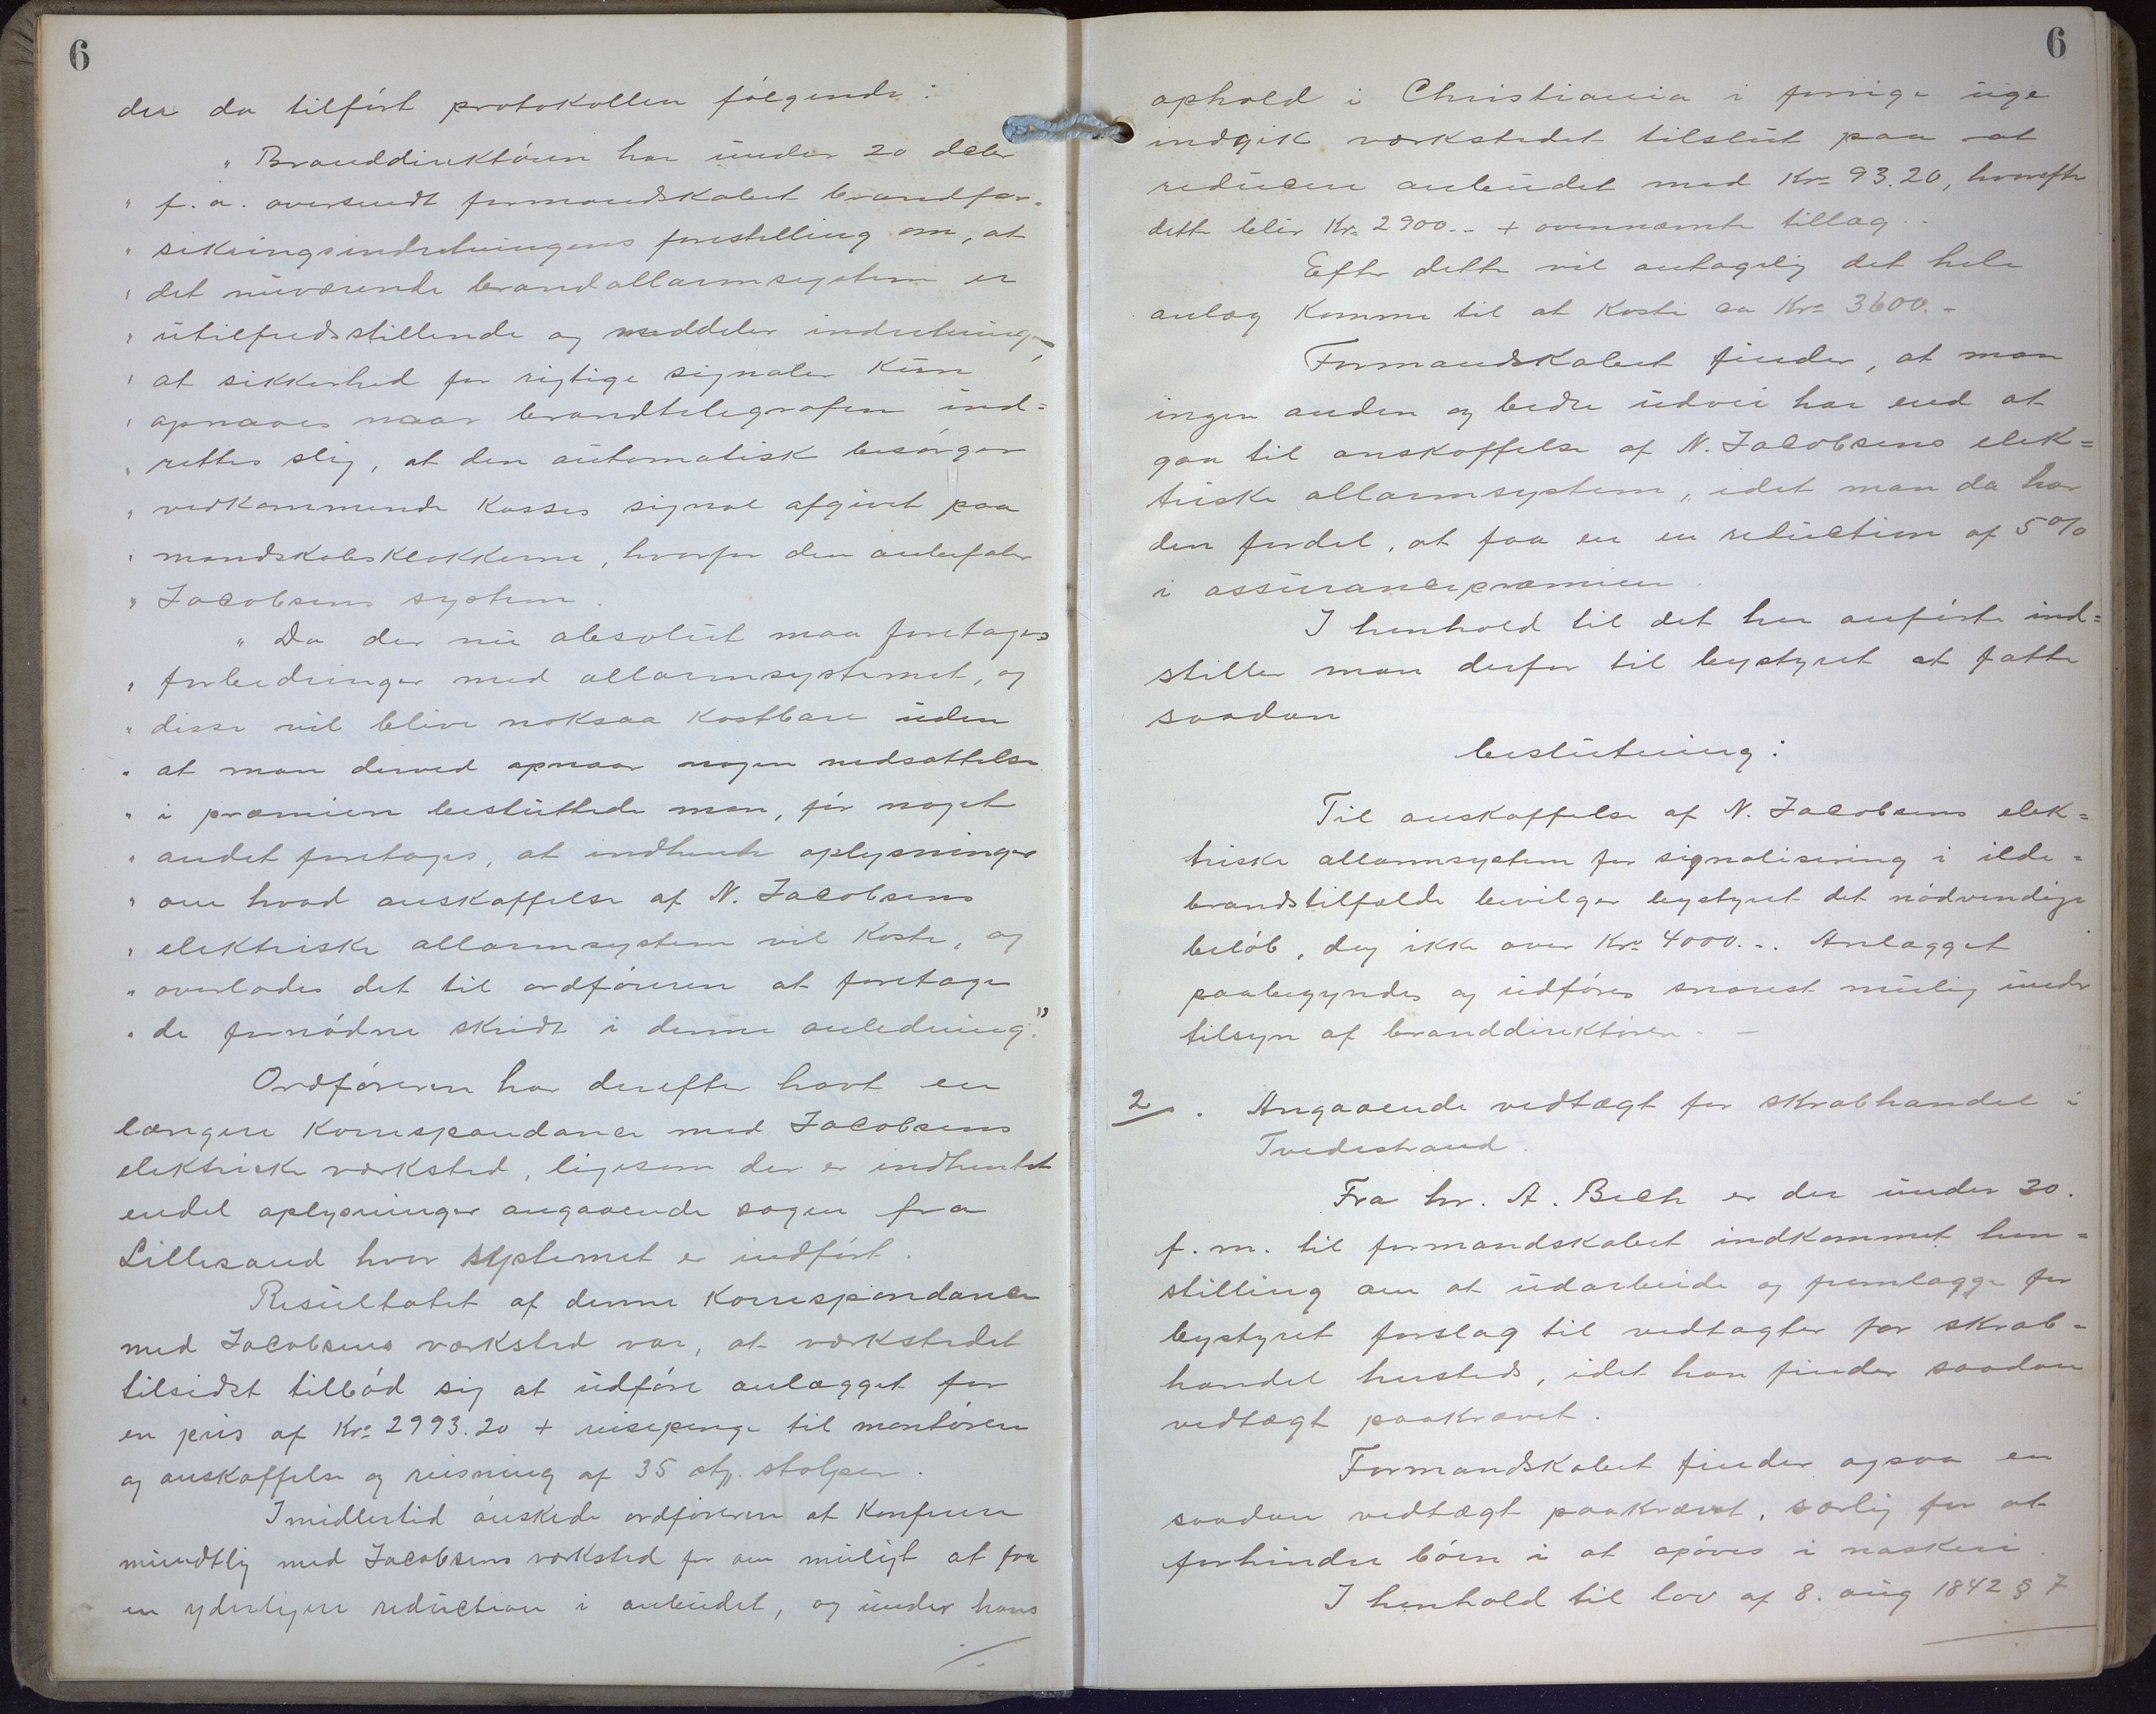 6
der da tilført protokollen følgende:
„Branddirektøren har under 20 decbr
" f. a. oversendt formandskabet brandfor-
" sikringsindretningens forestilling om, at
" det nuværende brandallarmsystem er
" utilfredsstillende og meddeler indretningen,
" at sikkerhed for rigtige signaler kun
" opnaaes naar brandtelegrafen ind=
" rettes slig, at den automatisk besørger
" vedkommende kasses signal afgivet paa
" mandskabsklokkerne, hvorfor den anbefaler
" Jacobsens system.
" Da der nu absolut maa foretages
" forbedringer med allarmsystemet, og
" disse vil blive noksaa kostbare uden
" at man derved opnaar nogen nedsættelse
" i præmien besluttede man, før noget
" andet foretages, at indhente oplysninger
" om hvad anskaffelse af N. Jacobsens
" elektriske allarmsystem vil koste, og
" overlodes det til ordføreren at foretage
" de fornødne skridt i denne anledning."
Ordføreren har derefter havt en
længere korrespondance med Jacobsens
elektriske værksted, ligesom der er indhentet
endel oplysninger angaaende sagen fra
Lillesand hvor systemet er indført.
Resultatet af denne korrespondance
med Jacobsens værksted var, at værkstedet
tilsidst tilbød sig at udføre anlægget for
en pris af Kr= 2993.20 + reisepenge til montøren
og anskaffelse og reisning af 35 stj. stolper.
Imidlertid ønskede ordføreren at konferere
mundtlig med Jacobsens værksted for om muligt at faa
en yderligere reduction i anbudet, og under hans
6
ophold i Christiania i forrige uge
indgik værkstedet tilslut paa at
reducere anbudet med Kr= 93.20, hvorefter
dette blir Kr= 2900.- + ovennævnte tillæg.-
Efter dette vil antagelig det hele
anlæg komme til at koste ca Kr= 3600.-
Formandskabet finder, at man
ingen anden og bedre udvei har end at
gaa til anskaffelse af N. Jacobsens elek=
triske allarmsystem, idet man da har
den fordel, at faa en en reduction af 5%
i assurancepræmien.
I henhold til det her anførte ind=
stiller man derfor til bystyret at fatte
saadan
beslutning:
Til anskaffelse af N. Jacobsens elek=
triske allarmsystem for signalisering i ilde=
brandstilfælde bevilger bystyret det nødvendige
beløb, dog ikke over Kr= 4000.-. Anlægget
paabegyndes og udføres snarest mulig under
tilsyn af branddirektøren. -
2. Angaaende vedtægt for skrabhandel i
Tvedestrand.
Fra hr. A. Bech er der under 30.
f. m. til formandskabet indkommet hen=
stilling om at udarbeide og fremlægge for
bystyret forslag til vedtægter for skrab=
handel hersteds, idet han finder saadan
vedtægt paakrævet.
Formandskabet finder ogsaa en
saadan vedtægt paakrævet, særlig for at
forhindre børn i at opøves i naskeri.
I henhold til lov af 8. aug 1842 § 7